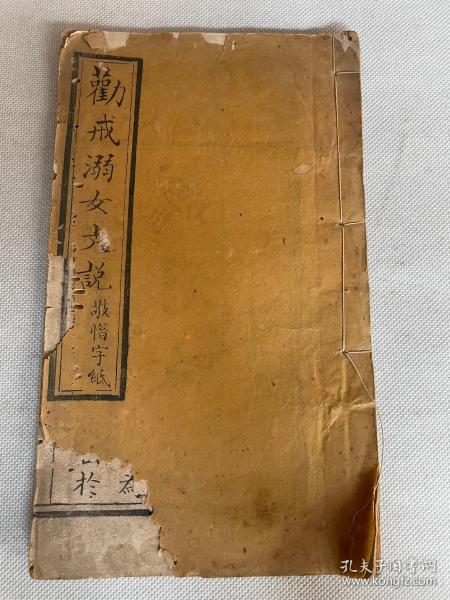 勸戒溺女
說
敬惜字紙
於
孔夫子旧书网
www.kongfz.com